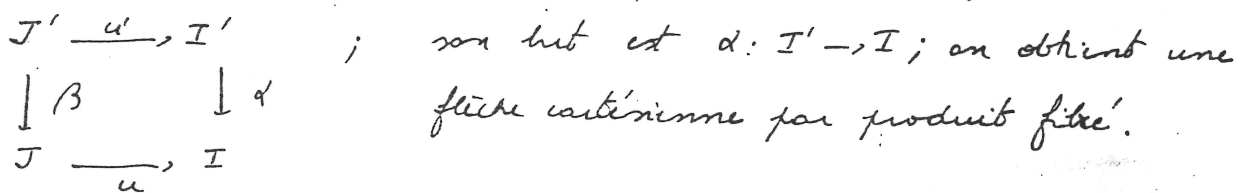 J' —u'→ I' ; son but est α: I' → I ; on obtient une
↓ β ↓ α flèche cartésienne par produit fibré.
J —u→ I